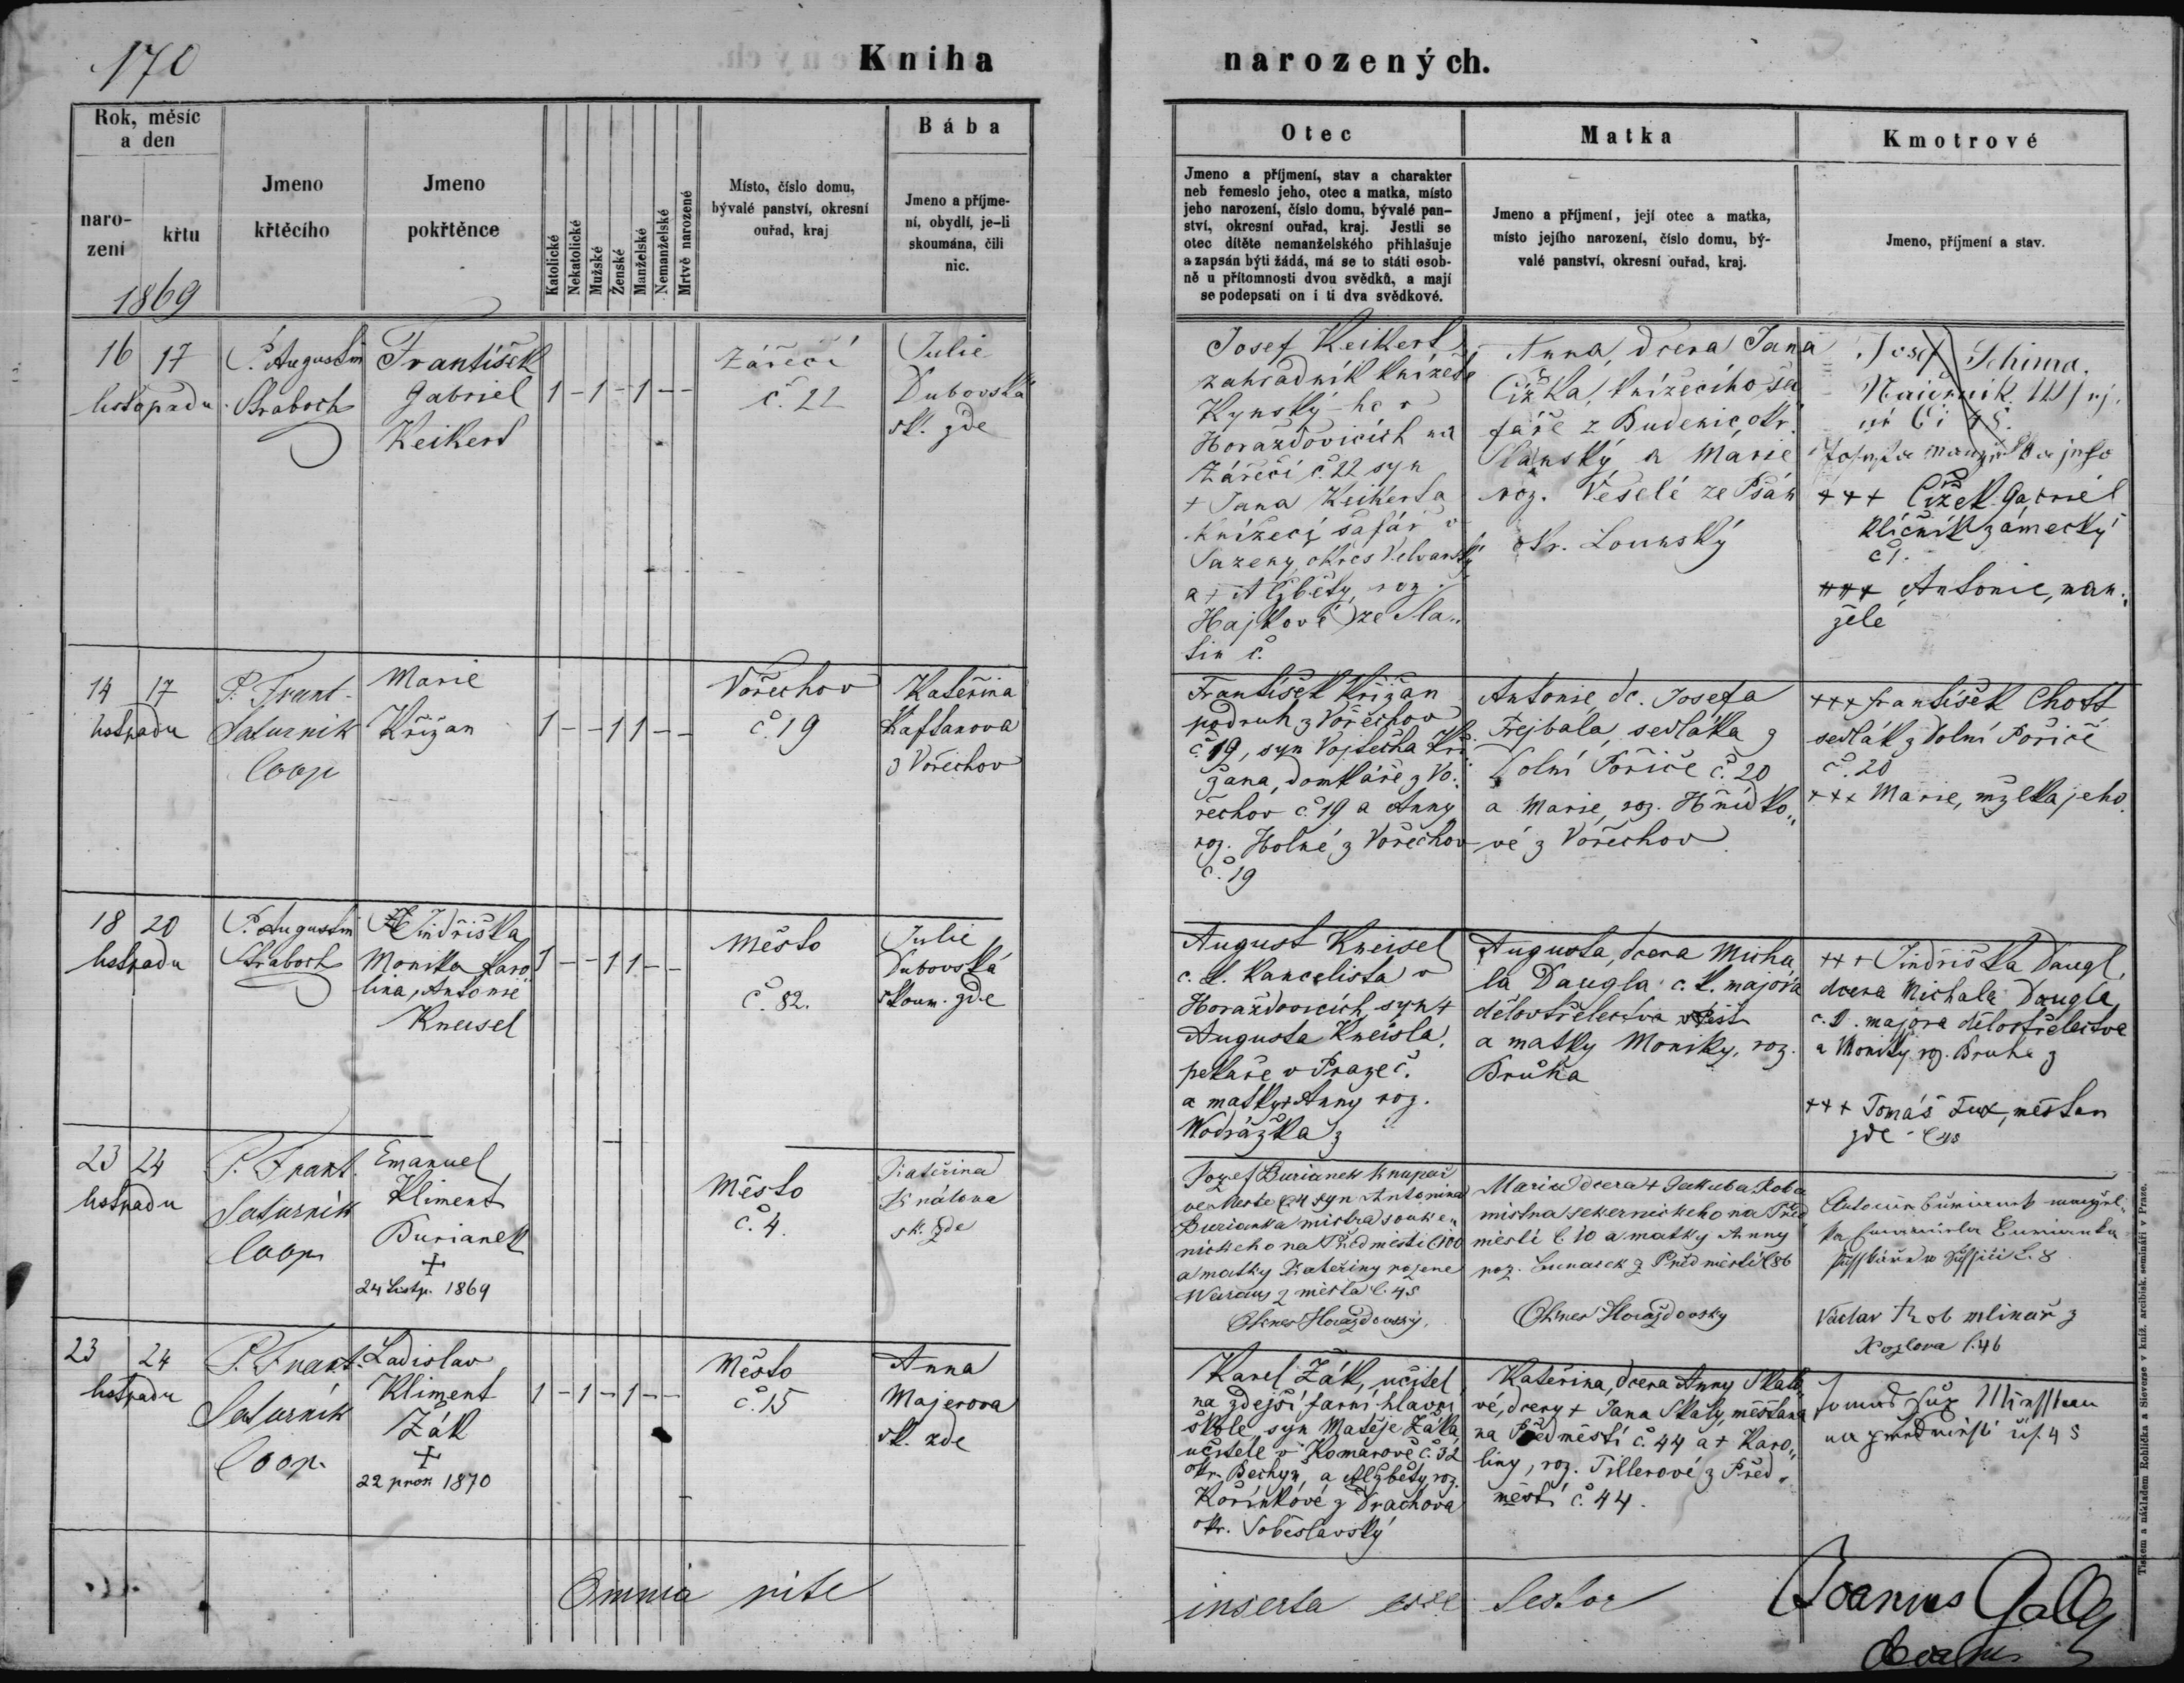 170
Kniha
narozených.
Rok, měsíc
a den
naro-
zení
křtu
1869
Jmeno
křtěcího
Jmeno
pokřtěnce
Katolické
Nekatolické
Mužské
Ženské
Manželské
Nemanželské
Mrtvě narozené
Místo, číslo domu,
bývalé panství, okresní
ouřad, kraj
Bába
Jmeno a příjme-
ní, obydlí, je-li
skoumána, čili
nic.
Otec
Jmeno a příjmení, stav a charakter
neb řemeslo jeho, otec a matka, místo
jeho narození, číslo domu, bývalé pan-
ství, okresní ouřad, kraj. Jestli se
otec dítěte nemanželského přihlašuje
a zapsán býti žádá, má se to státi osob-
ně u přítomnosti dvou svědků, a mají
se podepsati on i ti dva svědkové.
Matka
Jmeno a příjmení, její otec a matka,
místo jejího narození, číslo domu, bý-
valé panství, okresní ouřad, kraj.
Kmotrové
Jmeno, příjmení a stav.
16 17
listopadu
P. Augustin
Straboch
František
Gabriel
Keikert
1 - 1 - 1 - -
Zářečí
č. 22
Julie
Dubovská
sk. zde
Josef Keikert
zahradník knížete
Kynský-ho v
Horažďovicích na
Zářečí č. 22 syn
+ Jana Keikerta
knížecí šafář v
Sazeny okres Velvarský
a + Alžběty, roz.
Hajkové ze Sla„
tin č.
Anna, dcera Jana
Čížka, knížecího ša
fáře z Budenic, okr.
Slanský a Marie
roz. Veselé ze Psán
okr. Lounský
Josef Schima
+++ Čížek Gabriel
klíčník zámecký
č 1.
+++ Antonie, man„
želé
14 17
listpadu
P. Frant.
Saturník
Coop
Marie
Křižan
1 - - 1 1 - -
Vořechov
č. 19
Kateřina
Kaftanova
z Vořechov
František Křižan
podruh z Vořechov
č. 19, syn Vojtěcha Kři
žana, domkáře z Vo„
řechov č. 19 a Anny
roz. Holné z Vořechov
č. 19
Antonie, dc. Josefa
Frejbala, sedláka z
Dolní Pořiče č. 20
a Marie, roz. Hnídko„
vé z Vořechov
+++ František Chott
sedlák z Dolní Pořičí
č. 20
+++ Marie, mžlka jeho
18 20
listpadu
P. Augustin
Straboch
Jindřiška
Monika Karo
lina, Antonie
Kneisel
1 - - 1 1 - -
Město
č. 82.
Julie
Dubovská
skoum. zde
August Kneisel
c. k. kancelista v
Horažďovicích, syn +
Augusta Kneisla,
pekaře v Praze č.
a matky + Anny roz.
Wodrážka z
Augusta, dcera Micha
la Daugla c. k. majora
dělostřelectva
a matky Moniky, roz.
Bruha
+++ Jindřiška Daugl,
dcera Michala Daugla,
c. k. majora dělostřelectva
a Moniky roz. Bruha z
+++ Tomáš Fux, měšťan
zde č 45
23 24
listpadu
P. Frant.
Saturník
Coop
Emanuel
Kliment
Burianek
+
24 listp. 1869
Město
č. 4.
Kateřina
sk. zde
Jozef Burianek knupař
ve Meste č 4 syn Antonina
Burianka mistra souke„
nickeho na Předmesti č 100
a matky Kateřiny rozene
z města č. 45
Okres Horaždovský
Marie dcera + Jakuba Roba
mistra sekernickeho na Před
mesti č. 10 a matky Anny
roz. z Předmesti č 86
Okres Horaždovsky
Vaclav Rob mlinař z
Kozlova č. 46
23 24
listpadu
P. Frant.
Saturník
Coop.
Ladislav
Kliment
Žák
+
22 1870
1 - 1 - 1 - -
Město
č. 15
Anna
Majerova
sk. zde
Karel Žák, učitel
na zdejší farní hlavní
škole, syn Matěje Žáka,
učitele v Komárově č. 32
okr. Bechyn, a Alžběty, roz.
Kořínkové z Drachova
okr. Soběslavský
Kateřina, dcera Anny Skalo
vé, dcery + Jana Skaly, měšťana
na Předměstí č. 44 a + Karo„
liny, roz. Tillerové z Před„
městí č. 44.
Omnia rite
inserta esse testor
Joannes Galle
Tiskem a nákladem Rohlíčka a Sieverse v kníž. arcibisk. semináři v Praze.